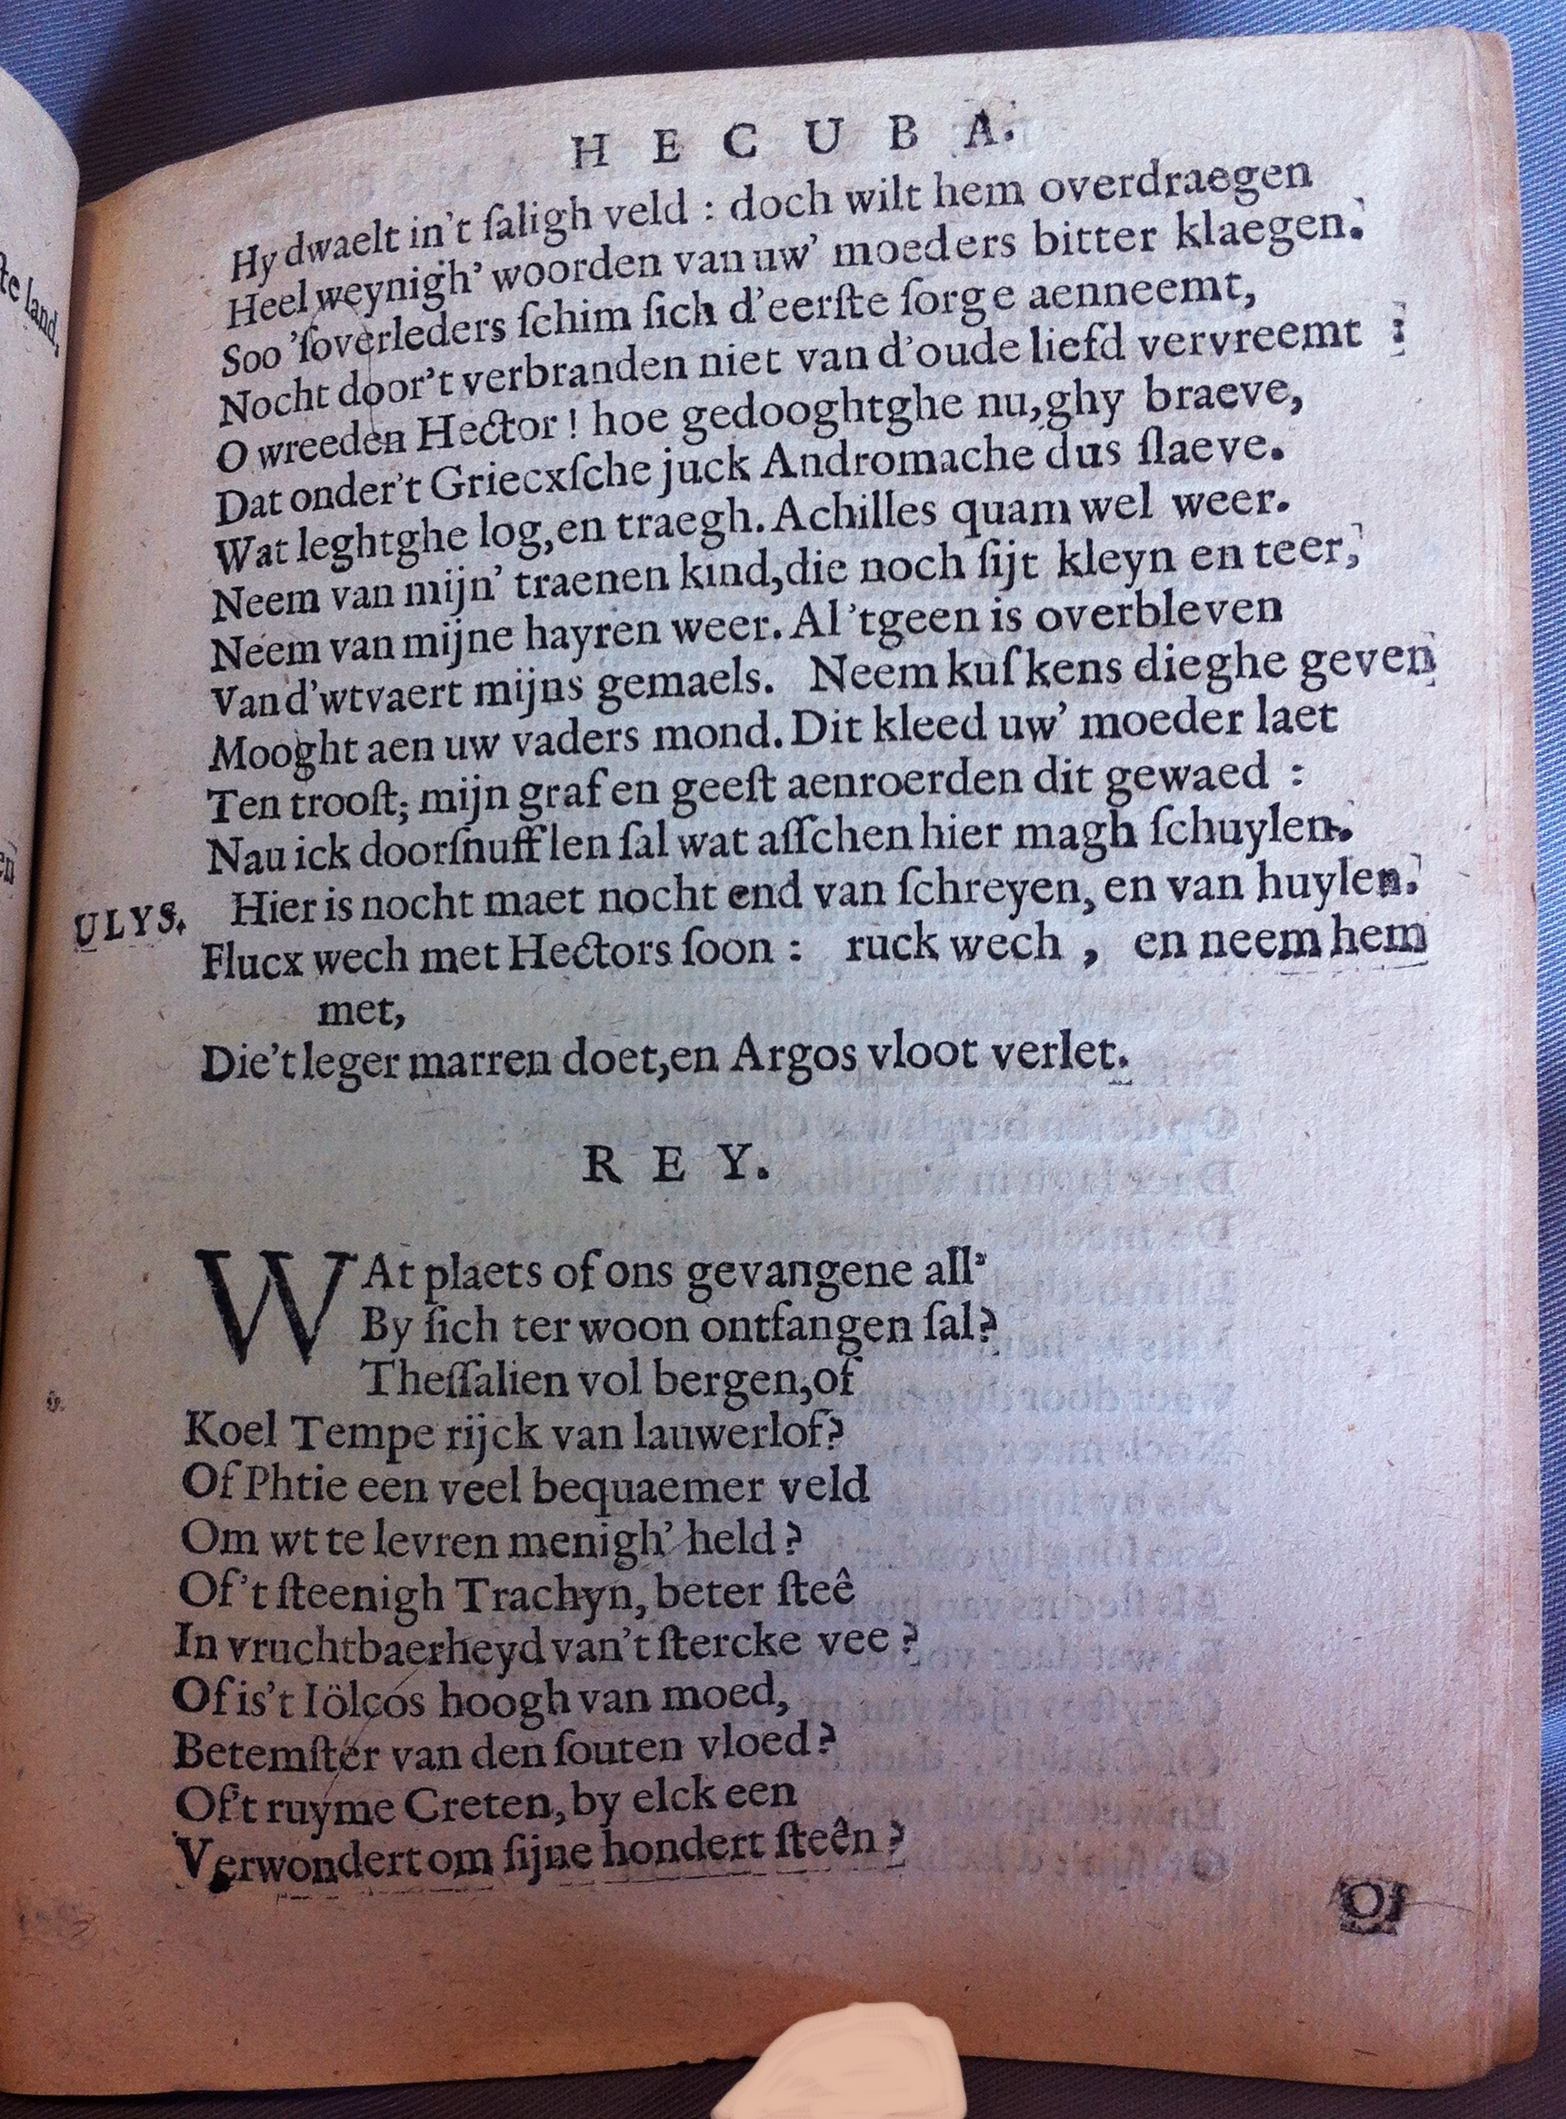 HECUBA.
Hy dwaelt in't ſaligh veld : doch wilt hem overdraegen
Heel weynigh' woorden van uw' moeders bitter klaegen.
Soo 'ſoverleders ſchim ſich d'eerſte ſorge aenneemt,
Nocht door't verbranden niet van d'oude liefd vervreemt :
O wreeden Hector ! hoe gedooghtghe nu, ghy braeve,
Dat onder't Griecxſche juck Andromache dus ſlaeve.
Wat leghtghe log, en traegh. Achilles quam wel weer.
Neem van mijn' traenen kind, die noch ſijt kleyn en teer,
Neem van mijne hayren weer. Al 'tgeen is overbleven
Van d'wtvaert mijns gemaels. Neem kuſkens dieghe geven
Mooght aen uw vaders mond. Dit kleed uw' moeder laet
Ten trooſt; mijn graf en geeſt aenroerden dit gewaed :
Nau ick doorſnufflen ſal wat aſſchen hier magh ſchuylen.
ULYS. Hier is nocht maet nocht end van ſchreyen, en van huylen.
Flucx wech met Hectors ſoon : ruck wech , en neem hem
met,
Die't leger marren doet, en Argos vloot verlet.
REY.
WAt plaets of ons gevangene all'
By ſich ter woon ontfangen ſal?
Theſſalien vol bergen, of
Koel Tempe rijck van lauwerlof?
Of Phtie een veel bequaemer veld
Om wt te levren menigh' held ?
Of 't ſteenigh Trachyn, beter ſteê
In vruchtbaerheyd van't ſtercke vee ?
Of is't Iölcos hoogh van moed,
Betemſter van den ſouten vloed?
Of't ruyme Creten, by elck een
Verwondert om ſijne hondert ſteên ?
Of
te land,
en